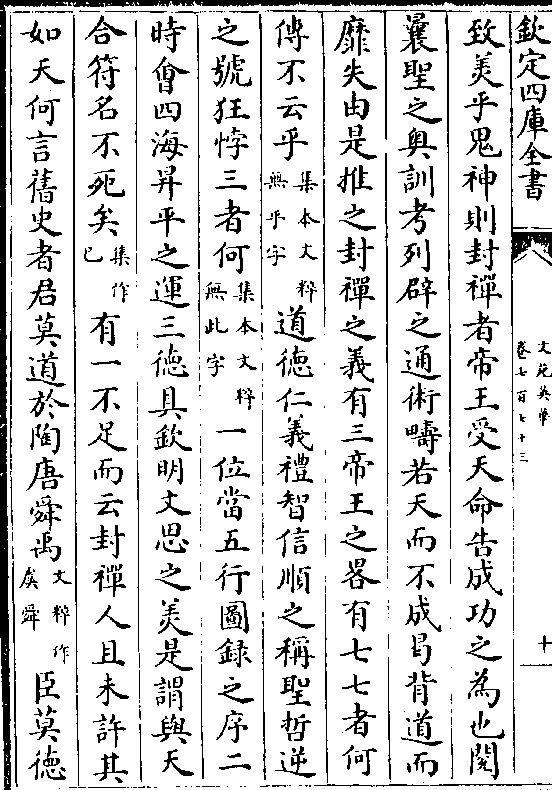 欽定四庫全書
文苑英華
卷七百七十三
十
致美乎鬼神則封禪者帝王受天命告成功之為也閱
曩聖之奥訓考列辟之通術疇若天而不成曷背道而
靡失由是推之封禪之義有三帝王之畧有七七者何
傳不云乎集本文粹無乎字道德仁義禮智信順之稱聖哲逆
之號狂悖三者何集本文粹無此字一位當五行圖錄之序二
時會四海昇平之運三德具欽明文思之美是謂與天
合符名不死矣集作已有一不足而云封禪人且未許其
如天何言舊史者君莫道於陶唐舜禹文粹作虞舜臣莫德